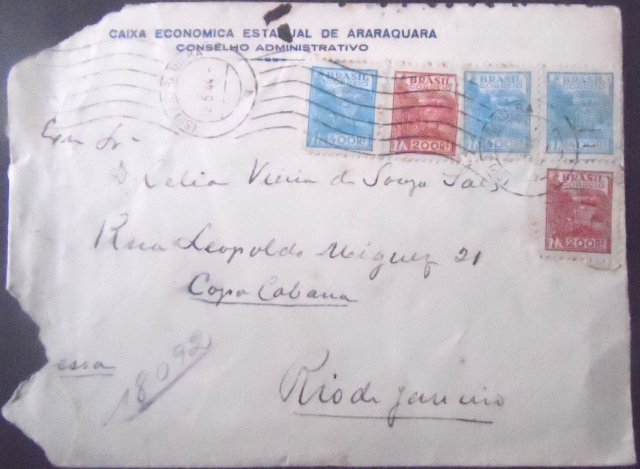 CAIXA ECONOMICA ESTADUAL DE ARARAQUARA
CONSELHO ADMINISTRATIVO
BRASIL
CORREIO
400 Rs
BRASIL
CORREIO
1200 Rs
BRASIL
CORREIO
400 Rs
BRASIL
CORREIO
400 Rs
BRASIL
CORREIO
1200 Rs
D. Celia Vieira de Souza
Rua Leopoldo Miguez 21
Copa Cabana
essa
18092
Rio de Janeiro